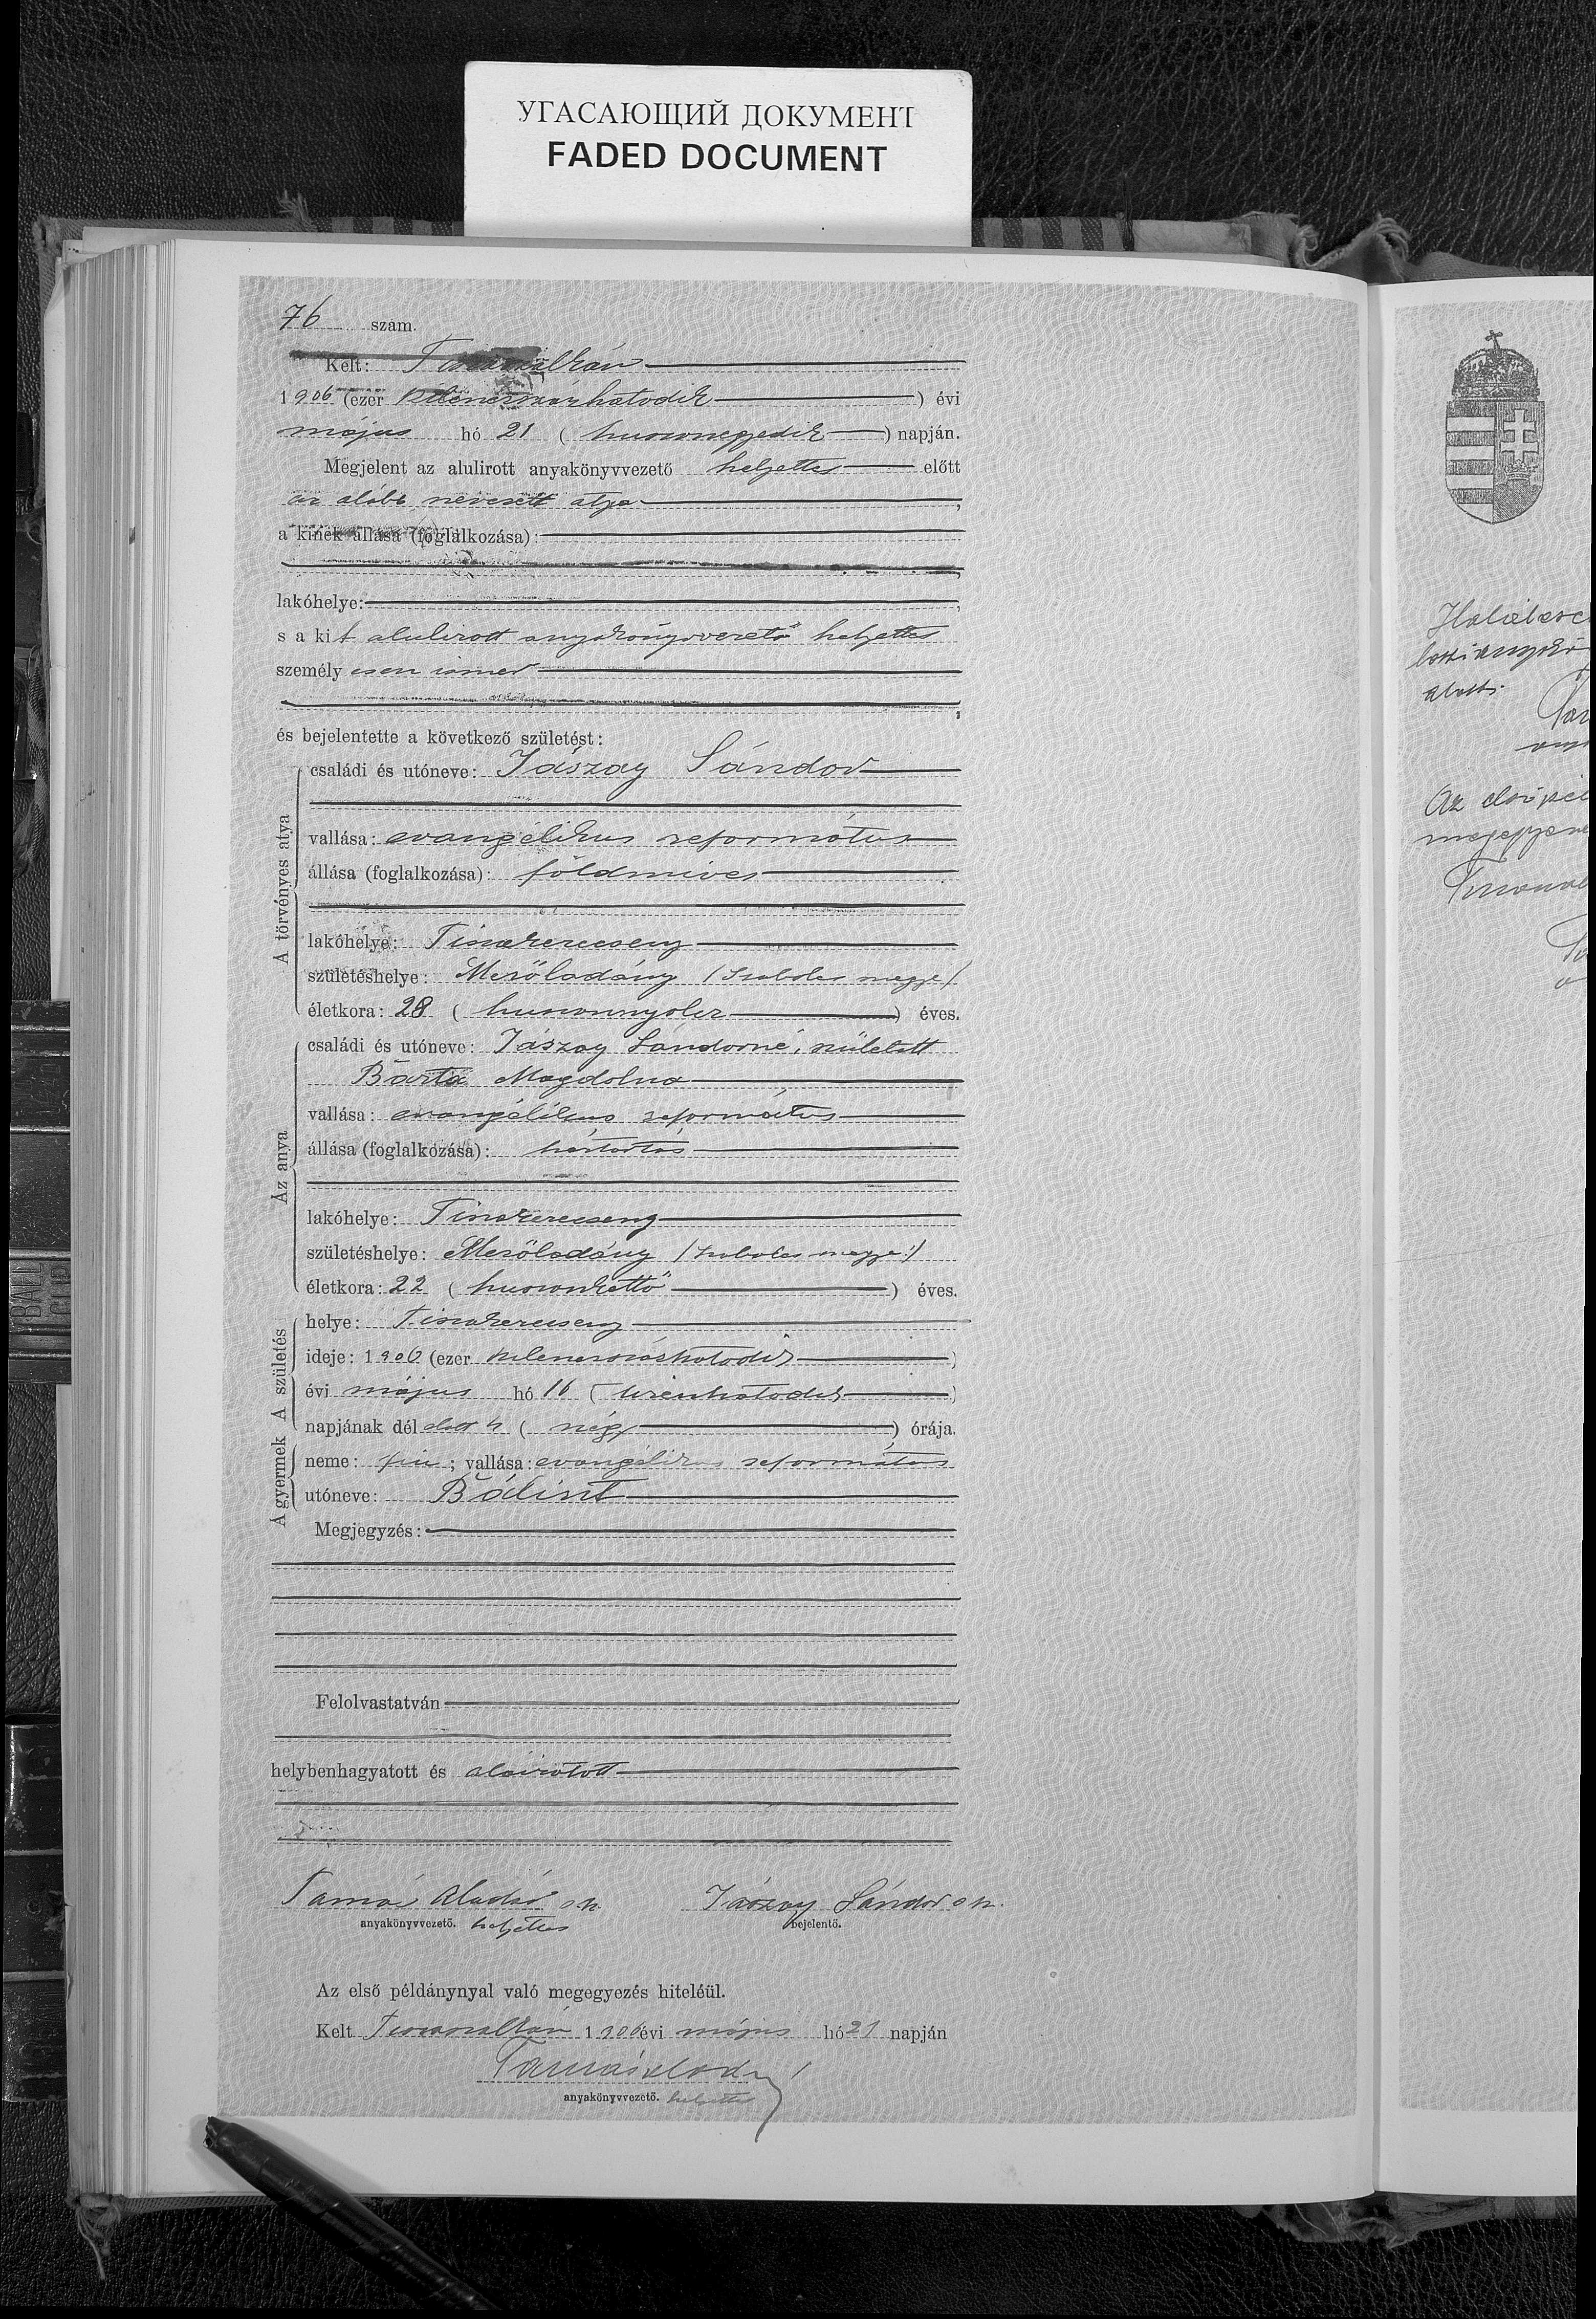 УГАСАЮЩИЙ ДОКУМЕНТ
FADED DOCUMENT
76 szám.
Kelt:
1906 (ezer kilenczszázhatodik) évi
május hó 21 (huszonegyedik) napján.
Megjelent az alulirott anyakönyvvezető helyettes előtt
az alább nevezett atya,
a kinek állása (foglalkozása):
lakóhelye:
s a kit alulirott anyakönyvvezető helyettes
személyesen ismer
és bejelentette a következő születést:
A törvényes atya
családi és utóneve: Jászay Sándor
vallása: evangélikus református
állása (foglalkozása): földmives
lakóhelye: Tiszakerecseny
születéshelye: Mezőladány (Szabolcs megye)
életkora: 28 (huszonnyolcz) éves.
Az anya
családi és utóneve: Jászay Sándorné, született
Barta Magdolna
vallása: evangélikus református
állása (foglalkozása): háztartás
lakóhelye: Tiszakerecseny
születéshelye: Mezőladány (Szabolcs megye)
életkora: 22 (huszonkettő) éves.
A születés
helye: Tiszakerecseny
ideje: 1906 (ezer kilenczszázhatodik)
évi május hó 16 (tizenhatodik)
napjának dél előtt 4 (négy) órája.
A gyermek
neme: fiu; vallása: evangélikus református
utóneve: Bálint
Megjegyzés:
Felolvastatván
helybenhagyatott és aláiratott
Tamás Aladár s k.
Jászay Sándor s k.
anyakönyvvezető. helyettes
bejelentő.
Az első példánynyal való megegyezés hiteléül.
Kelt 1906 évi május hó 21 napján
Tamás Aladár
anyakönyvvezető. helyettes
Az első pél